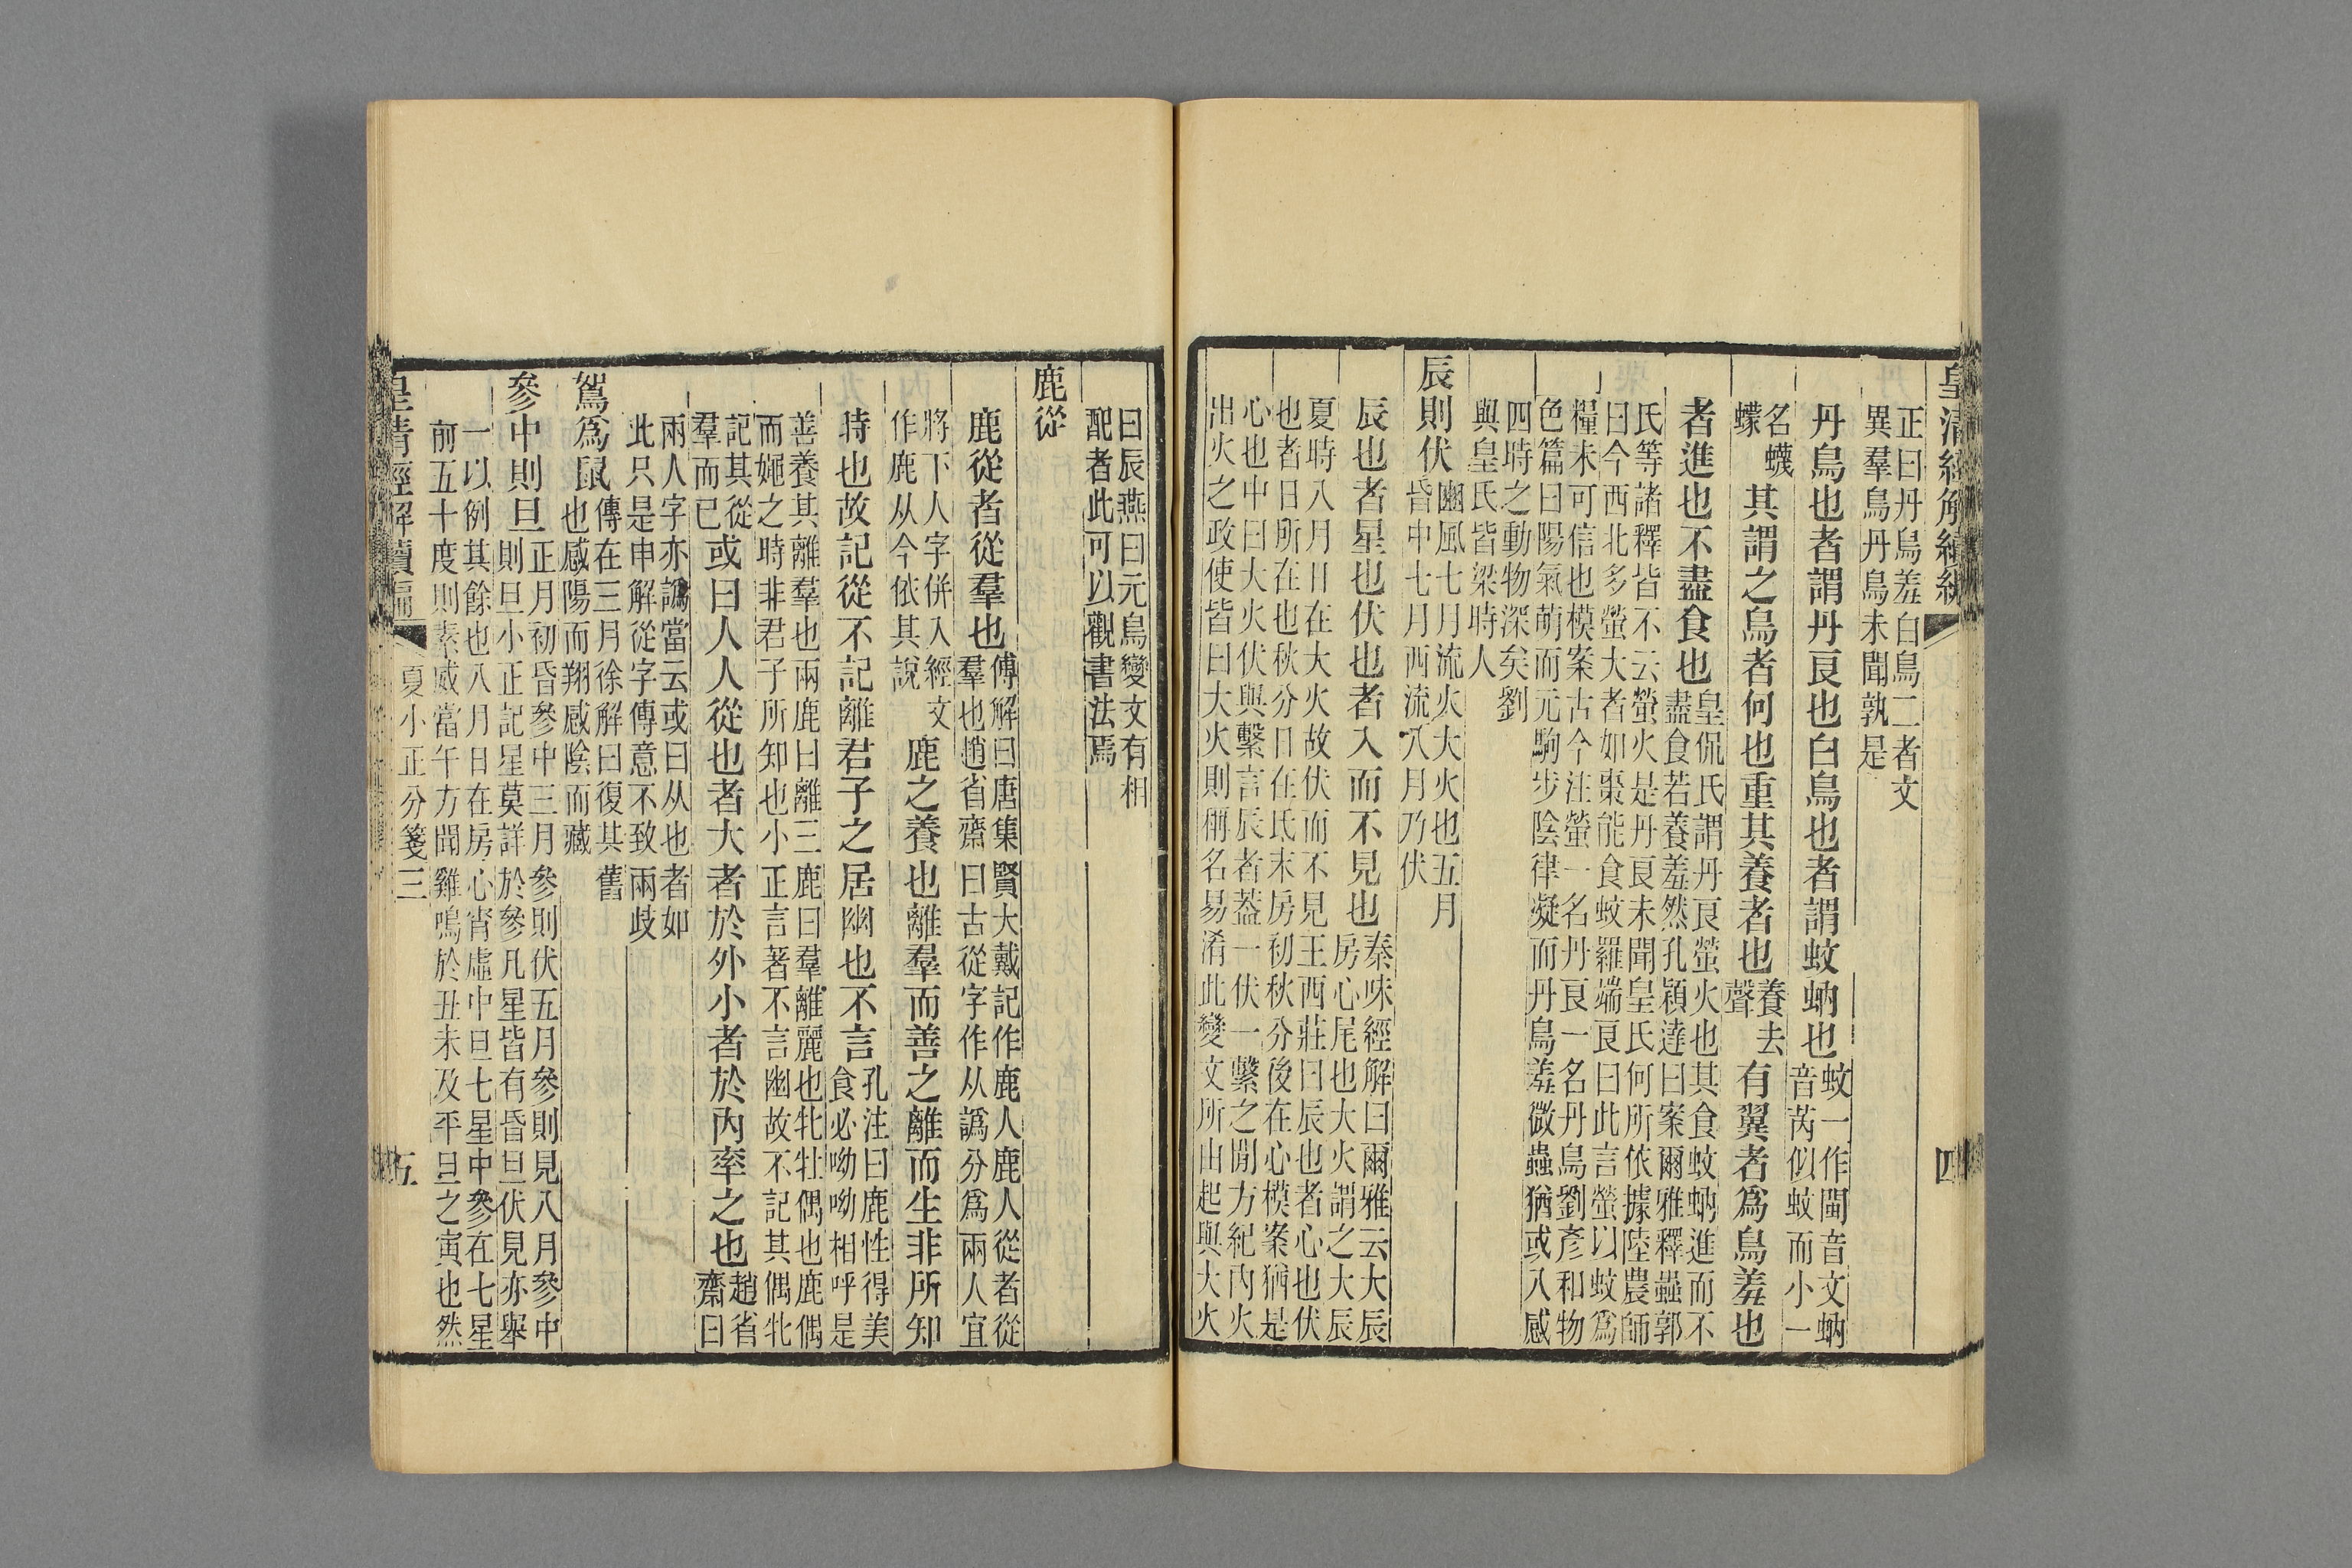 皇清經解續編
四
正曰丹鳥羞白鳥二者文
異羣鳥丹鳥未聞孰是
丹鳥也者謂丹良也白鳥也者謂蚊蚋也
蚊一作閩音文蚋
音芮似蚊而小一
名蠛
蠓
其謂之鳥者何也重其養者也
養去
聲
有翼者爲鳥羞也
者進也不盡食也
皇侃氏謂丹良螢火也其食蚊蚋進而不
盡食若養羞然孔穎達曰案爾雅釋蟲郭
氏等諸釋皆不云螢火是丹良未聞皇氏何所依據陸農師
曰今西北多螢大者如棗能食蚊羅端良曰此言螢以蚊爲
糧未可信也模案古今注螢一名丹良一名丹鳥劉彥和物
色篇曰陽氣萌而元駒步陰律凝而丹鳥羞微蟲猶或入感
四時之動物深矣劉
與皇氏皆梁時人
辰則伏
豳風七月流火大火也五月
昏中七月西流八月乃伏
辰也者星也伏也者入而不見也
秦味經解曰爾雅云大辰
房心尾也大火謂之大辰
夏時八月日在大火故伏而不見王西莊曰辰也者心也伏
也者日所在也秋分日在氐末房初秋分後在心模案猶是
心也中曰大火伏與繫言辰者葢一伏一繫之閒方紀內火
出火之政使皆曰大火則稱名易淆此變文所由起與大火
曰辰燕曰元鳥變文有相
配者此可以觀書法焉
鹿從
鹿從者從羣也
傅解曰唐集賢大戴記作鹿人鹿人從者從
羣也趙省齋曰古從字作从譌分爲兩人宜
將下人字併入經文
作鹿从今依其說
鹿之養也離羣而善之離而生非所知
時也故記從不記離君子之居幽也不言
孔注曰鹿性得美
食必呦呦相呼是
善養其離羣也兩鹿曰離三鹿曰羣離麗也牝牡偶也鹿偶
而㛿之時非君子所知也小正言著不言幽故不記其偶牝
記其從
羣而已
或曰人人從也者大者於外小者於內率之也
趙省
齋曰
兩人字亦譌當云或曰从也者如
此只是申解從字傳意不致兩歧
鴽爲鼠
傳在三月徐解曰復其舊
也感陽而翔感陰而藏
參中則旦
正月初昏參中三月參則伏五月參則見八月參中
則旦小正記星莫詳於參凡星皆有昏旦伏見亦舉
一以例其餘也八月日在房心宵虛中旦七星中參在七星
前五十度則素威當午方聞雞鳴於丑未及平旦之寅也然
皇清經解續編
夏小正分箋三
五